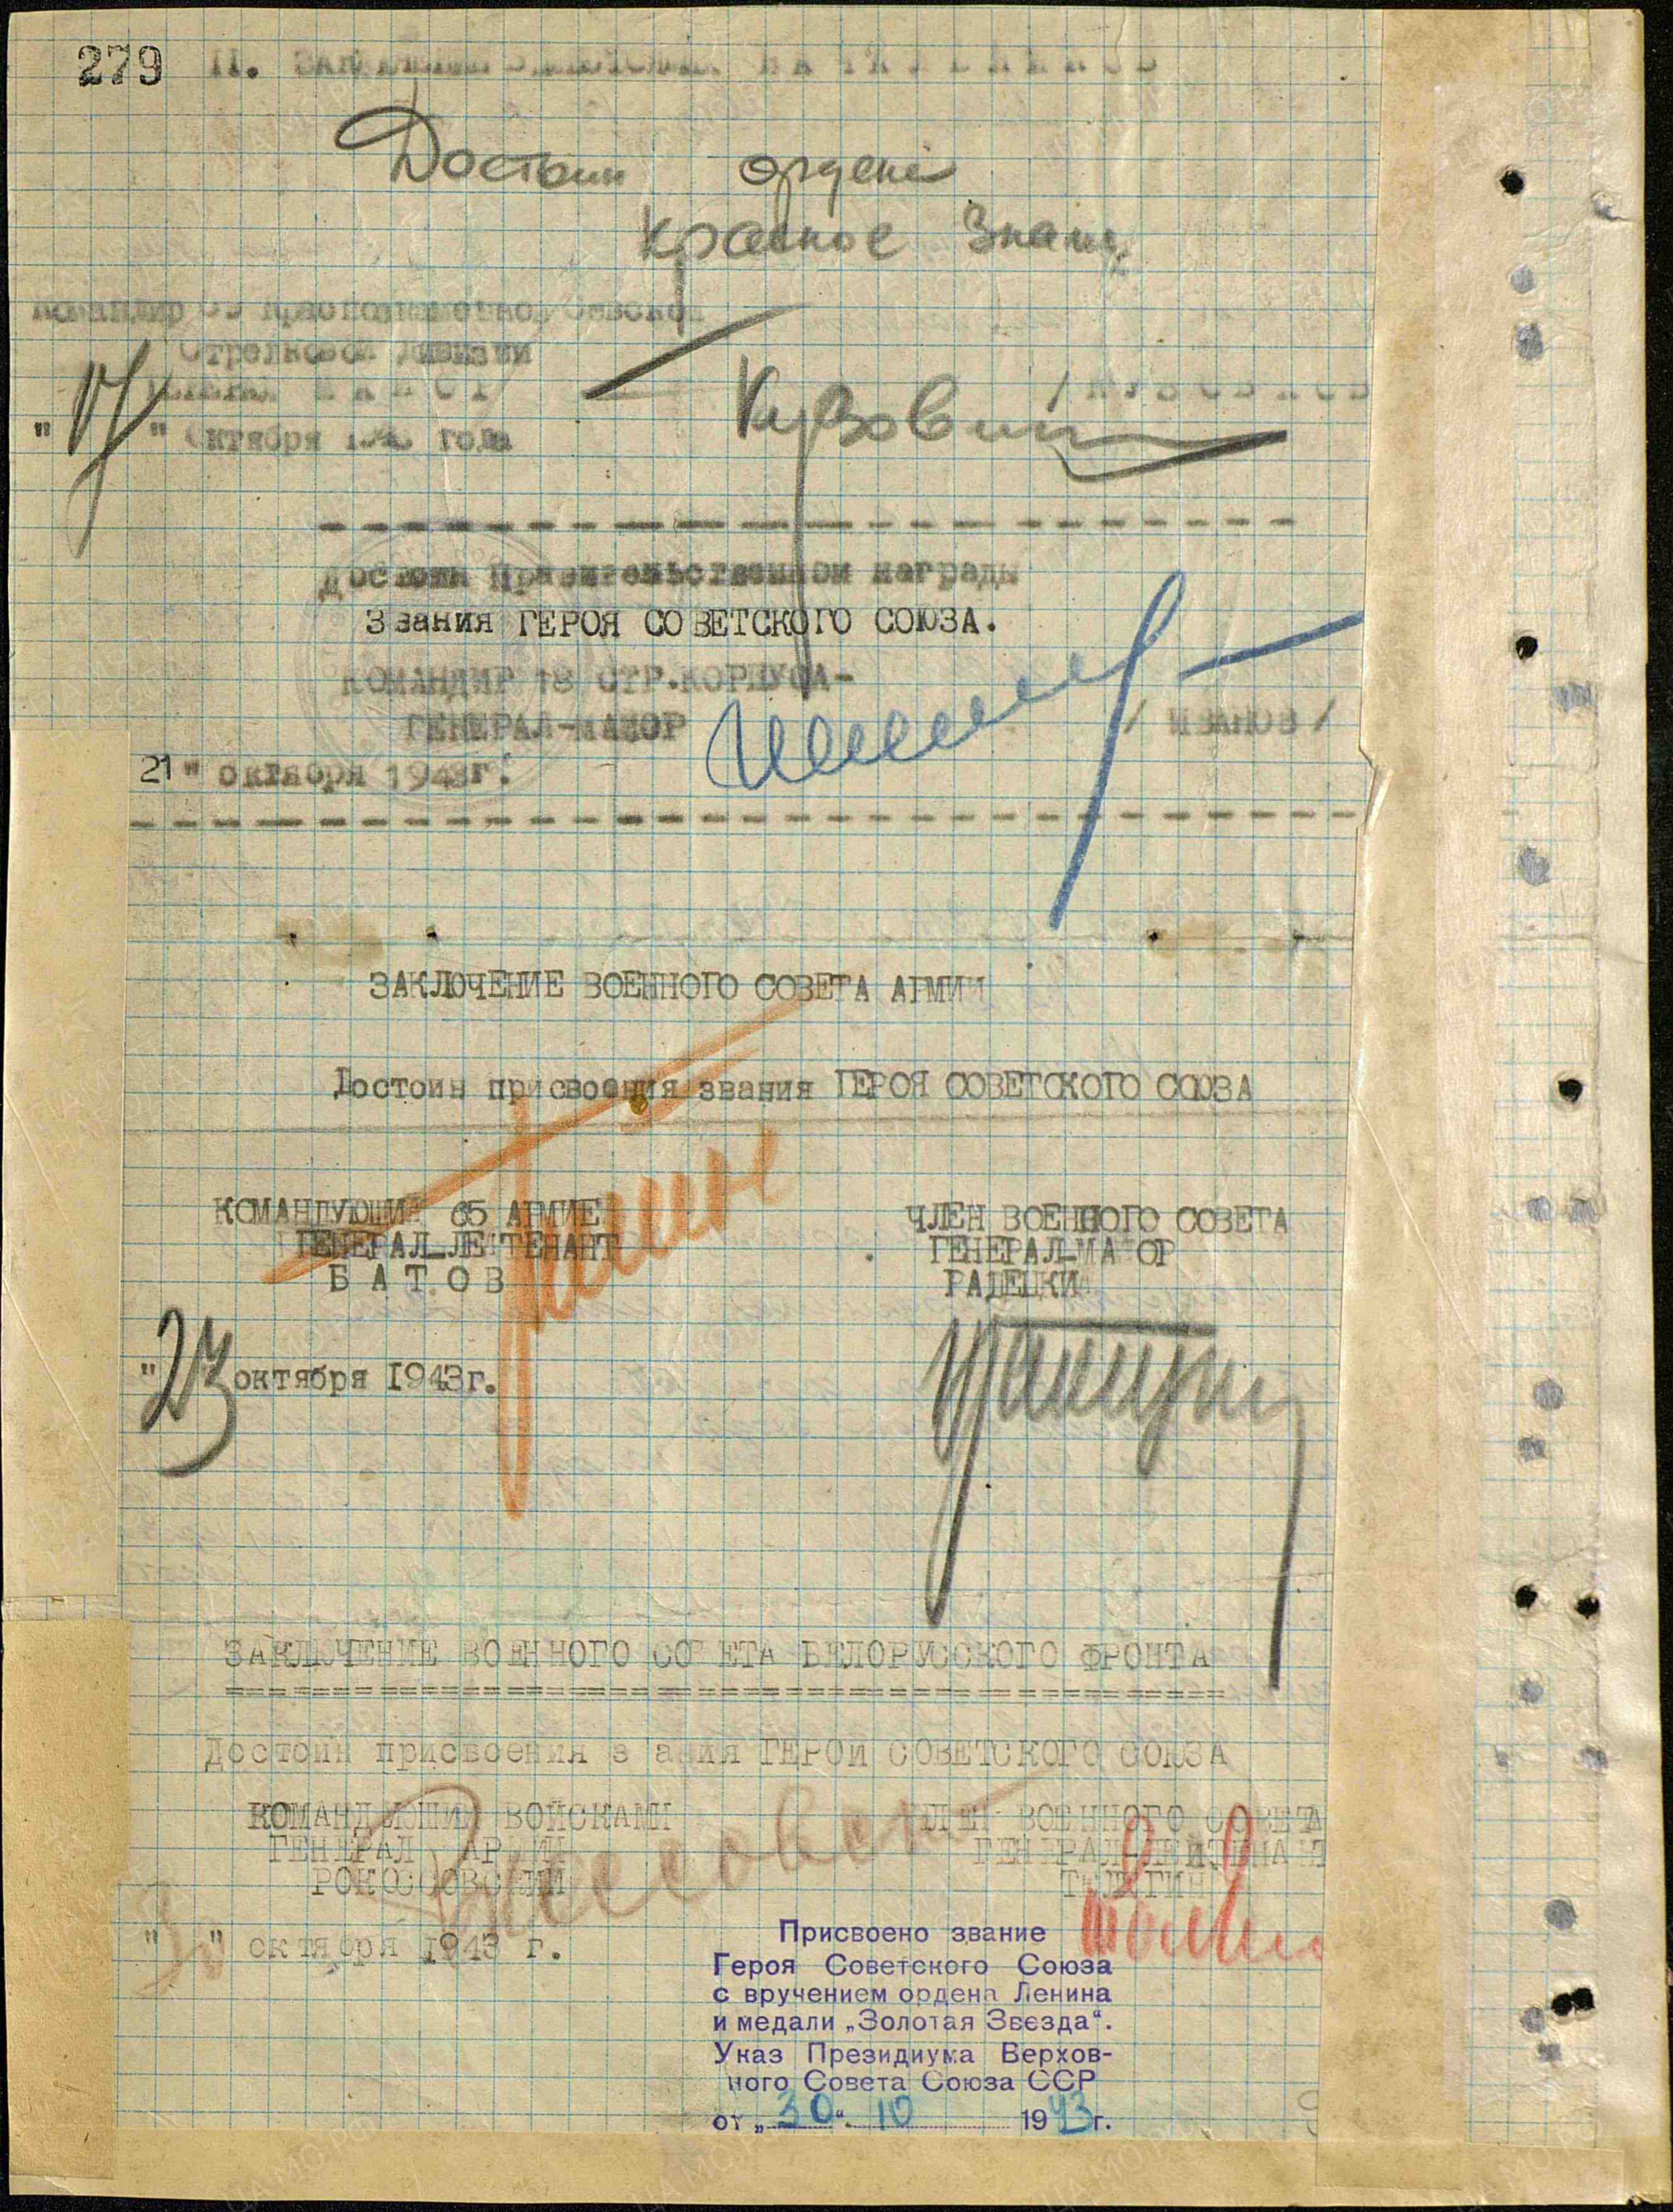 279 II.
Достоин ордена
Красное Знамя
Командир 69 Краснознаменной Севской
Стрелковой Дивизии
" " Октября года
Кузовков
Достоин Правительственной награды
Звания ГЕРОЯ СОВЕТСКОГО СОЮЗА.
КОМАНДИР 18 СТР.КОРПУСА-
ГЕНЕРАЛ-МАЙОР / ИВАНОВ /
21 " октября 1943г.
ЗАКЛЮЧЕНИЕ ВОЕННОГО СОВЕТА АРМИИ
Достоин присвоения звания ГЕРОЯ СОВЕТСКОГО СОЮЗА
КОМАНДУЮЩИЙ 65 АРМИЕЙ ЧЛЕН ВОЕННОГО СОВЕТА
ГЕНЕРАЛ-ЛЕЙТЕНАНТ ГЕНЕРАЛ-МАЙОР
БАТОВ РАДЕЦКИЙ
"23 октября 1943г.
ЗАКЛЮЧЕНИЕ ВОЕННОГО СОВЕТА БЕЛОРУССКОГО ФРОНТА
Достоин присвоения звания ГЕРОЙ СОВЕТСКОГО СОЮЗА
КОМАНДУЮЩИЙ ВОЙСКАМИ ЧЛЕН ВОЕННОГО СОВЕТА
ГЕНЕРАЛ АРМИИ ГЕНЕРАЛ-ЛЕЙТЕНАНТ
РОКОССОВСКИЙ ТЕЛЕГИН
" " октября 1943 г.
Присвоено звание
Героя Советского Союза
с вручением ордена Ленина
и медали „Золотая Звезда“.
Указ Президиума Верхов-
ного Совета Союза ССР
от „30“ 10 1943г.